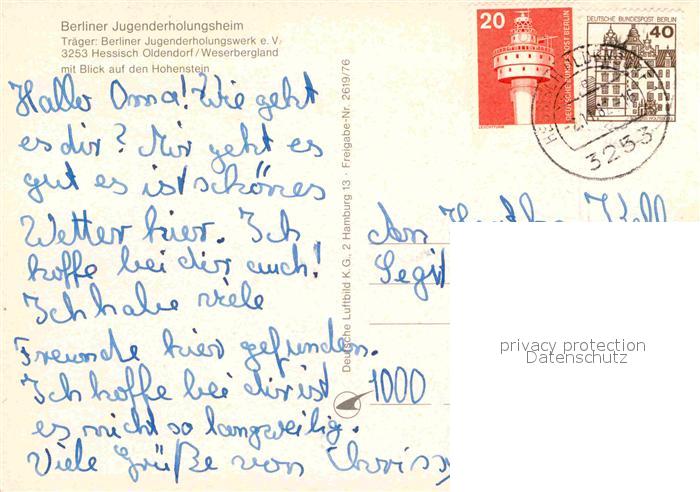 Berliner Jugenderholungsheim
Träger: Berliner Jugenderholungswerk e. V.
3253 Hessisch Oldendorf / Weserbergland
mit Blick auf den Hohenstein
Hallo Oma! Wie geht
es dir? Mir geht es
gut es ist schönes
Wetter hier. Ich
hoffe bei dir auch!
Ich habe viele
Freunde hier gefunden.
Ich hoffe bei dir ist
es nicht so langweilig.
Viele Grüße von Chrissy
Deutsche Luftbild K.G., 2 Hamburg 13 · Freigabe-Nr. 2619/76
20
DEUTSCHE BUNDESPOST BERLIN
LEUCHTTURM
DEUTSCHE BUNDESPOST BERLIN
40
3253
An
1000
privacy protection
Datenschutz